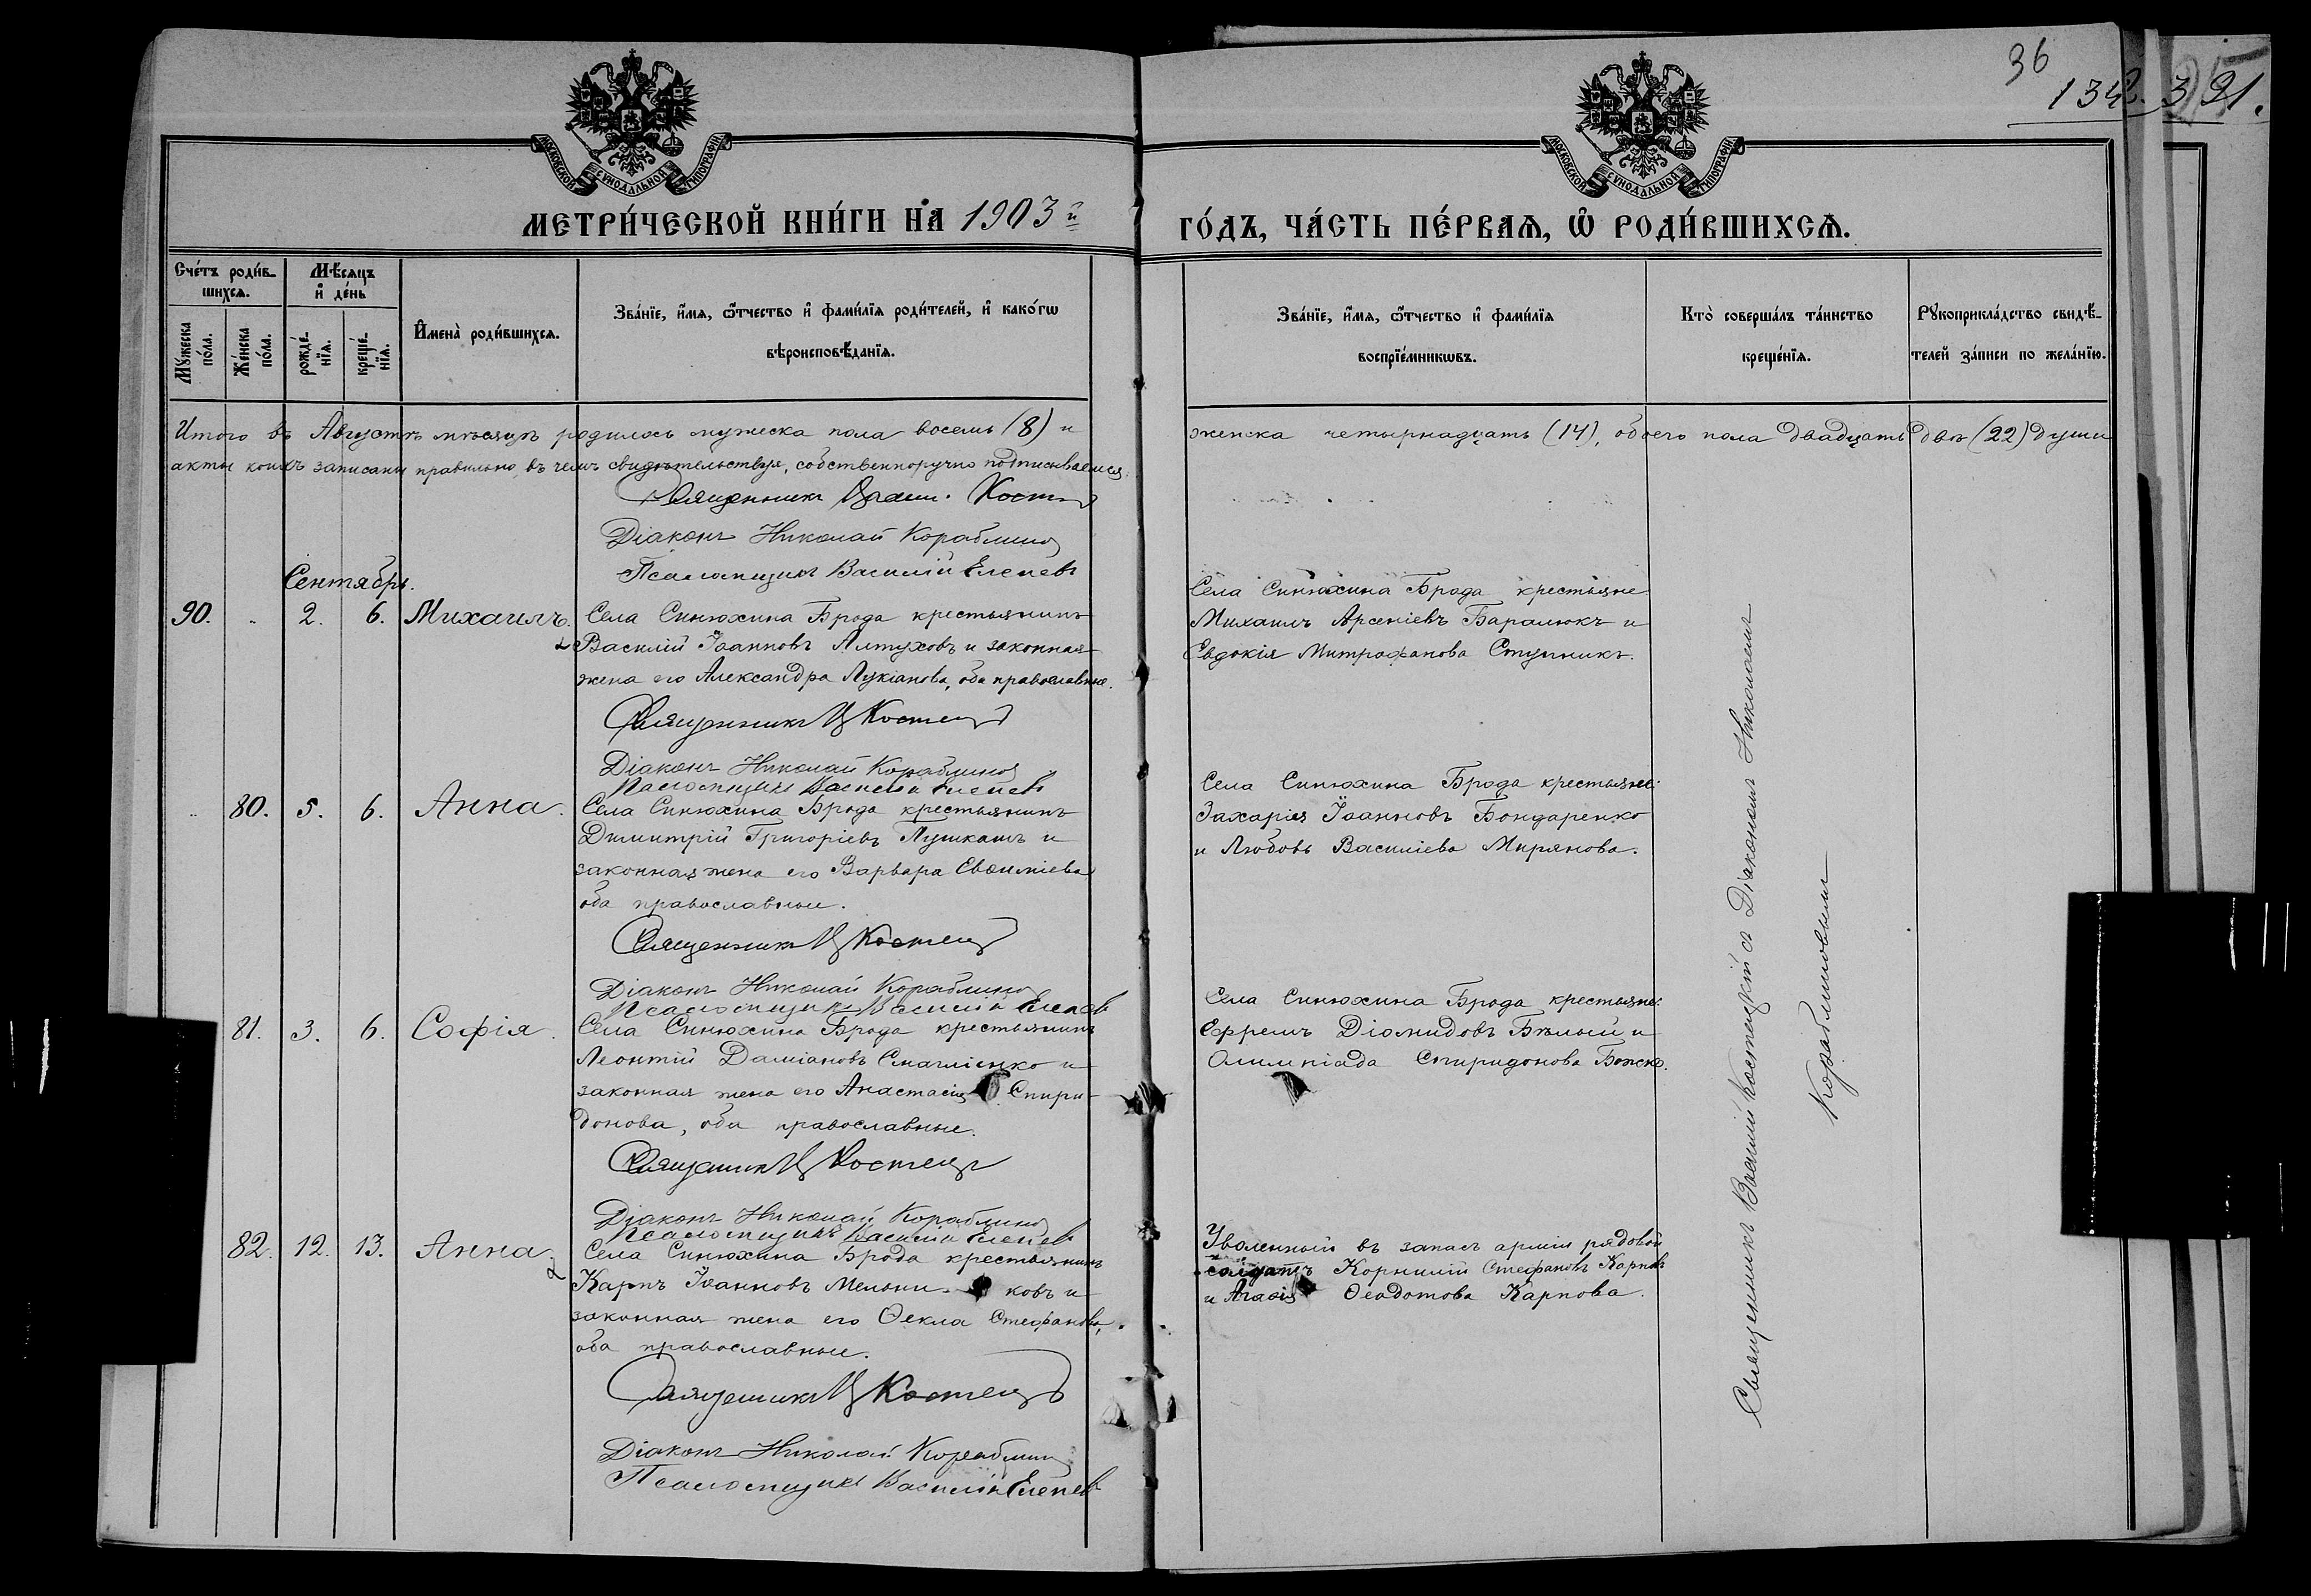 36
134. 3 21.
МОСКОВСКОЙ СѴНОДАЛЬНОЙ ТИПОГРАФІИ
МОСКОВСКОЙ СѴНОДАЛЬНОЙ ТИПОГРАФІИ
МЕТРИ́ЧЕСКОЙ КНИ́ГИ НА 1903 й
ГО́ДЪ, ЧА́СТЬ ПЕ́РВАѦ, Ѿ РОДИ́ВШИХСѦ.
Сче́тъ роди́в-
шихсѧ.
Мѣ́сяцъ
и҆ де́нь
Мꙋ́жеска
по́ла.
Же́нска
по́ла.
рожде́-
нїѧ.
креще́-
нїѧ.
И҆мена̀ роди́вшихсѧ.
Зва́нїе, и҆́мѧ, ѻ҆́тчество и҆ фами́лїѧ роди́телей, и҆ како́гѡ
вѣроисповѣ́данїѧ.
Зва́нїе, и҆́мѧ, ѻ҆́тчество и҆ фами́лїѧ
воспрїе́мникѡвъ.
Кто̀ соверша́лъ та́инство
креще́нїѧ.
Рꙋкоприкла́дство свидѣ́-
телей за́писи по жела́нїю.
Итого въ Августѣ мѣсяцѣ родилось мужеска пола восемь (8) и
женска четырнадцать (14), обоего пола двадцать двѣ (22) души
акты коихъ записаны правильно, въ чемъ свидѣтельствуя, собственноручно подписываемся
Священникъ Васил. Костец
Діаконъ Николай Кораблиновъ
Псаломщикъ Василій Елепевъ
Сентябрь.
90. " 2. 6. Михаилъ.
Села Синюхина Брода крестьянинъ
Василій Іоанновъ Алтуховъ и законная
жена его Александра Лукіанова, оба православные.
Священникъ В Костец
Діаконъ Николай Кораблиновъ
Псаломщикъ Василій Елепевъ
Села Синюхина Брода крестьяне
Михаилъ Арсеніевъ Баралюкъ и
Евдокія Митрофанова Ступникъ.
" 80. 5. 6. Анна.
Села Синюхина Брода крестьянинъ
Димитрій Григоріевъ Лушкашъ и
законная жена его Варвара Евѳиміева
оба православные.
Священникъ В Костец
Діаконъ Николай Кораблиновъ
Псаломщикъ Василій Елепевъ
Села Синюхина Брода крестьяне:
Захарія Іоанновъ Бондаренко
и Любовь Василіева Мирянова.
81. 3. 6. Софія.
Села Синюхина Брода крестьянинъ
Леонтій Даміановъ Смагліенко и
законная жена его Анастасія Спири-
донова, оба православные.
Священникъ В Костец
Діаконъ Николай Кораблиновъ
Псаломщикъ Василій Елепевъ
Села Синюхина Брода крестьяне:
Ефремъ Діомидовъ Бѣлый и
Олимпіада Спиридонова Божко.
82. 12. 13. Анна.
Села Синюхина Брода крестьянинъ
Карпъ Іоанновъ Мельни- ковъ и
законная жена его Ѳекла Стефанова,
оба православные.
Священникъ В Костец
Діаконъ Николай Кораблиновъ
Псаломщикъ Василій Елепевъ
Уволенный въ запасъ арміи рядовой
солдатъ Корнилій Стефановъ Карповъ
и Агаѳія Ѳеодотова Карпова.
Священникъ Василій Костецкій съ Діакономъ Николаемъ
Кораблиновымъ